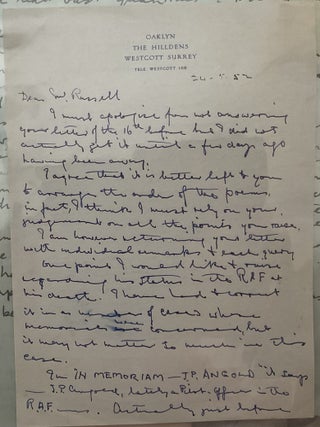 OAKLYN
THE HILLDENS
WESTCOTT SURREY
TELE WESTCOTT
52
Dear Mr. Russell
I must apologise for not answering
your letter of the 16th before but I did not
actually get it until a few days ago
having been away.
I agree that it is better left to you
to arrange the order of the poems,
in fact, I think I must rely on your
judgement on all the points you raise.
I am however returning your letter
with individual remarks to each query
One point I would like to raise
regarding his status in the RAF at
his death. I have had to correct
it in a number of cases where
memories were concerned, but
it may not matter so much in this
case.
In "IN MEMORIAM — J.P. ANGOLD" it says
— J.P. Angold, lately a Pilot Officer in the
R.A.F. Actually just before